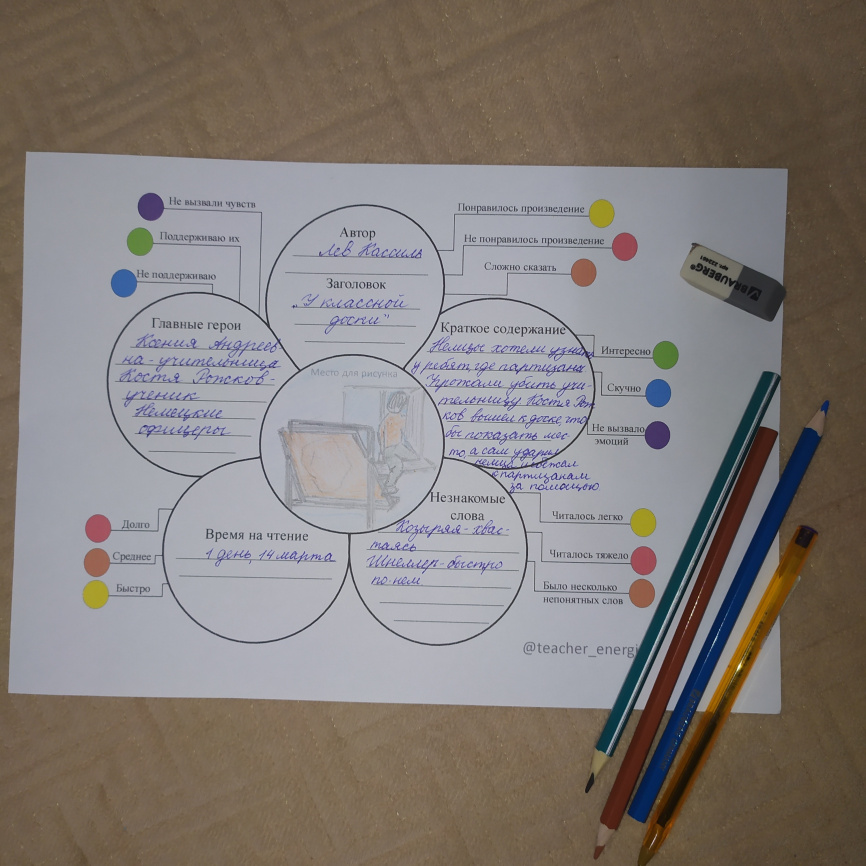 Не вызвали чувств
Поддерживаю их
Не поддерживаю
Понравилось произведение
Не понравилось произведение
Сложно сказать
Автор
Лев Кассиль
Заголовок
„У классной
доски"
Главные герои
Ксения Андреев
на-учительница
Костя Рожков-
ученик
Немецкие
офицеры
Краткое содержание
Немцы хотели узнать
у ребят, где партизаны
Угрожали убить учи-
тельницу. Костя Рож
ков вышел к доске, что
бы показать мес
то, а сам ударил
немца и убежал
к партизанам
за помощью
Интересно
Скучно
Не вызвало
эмоций
Место для рисунка
Время на чтение
1 день, 14 марта
Долго
Среднее
Быстро
Незнакомые
слова
Козыряя-хвас-
таясь
Шнеллер-быстро
по-нем.
Читалось легко
Читалось тяжело
Было несколько
непонятных слов
@teacher_energi
BRAUBERG®